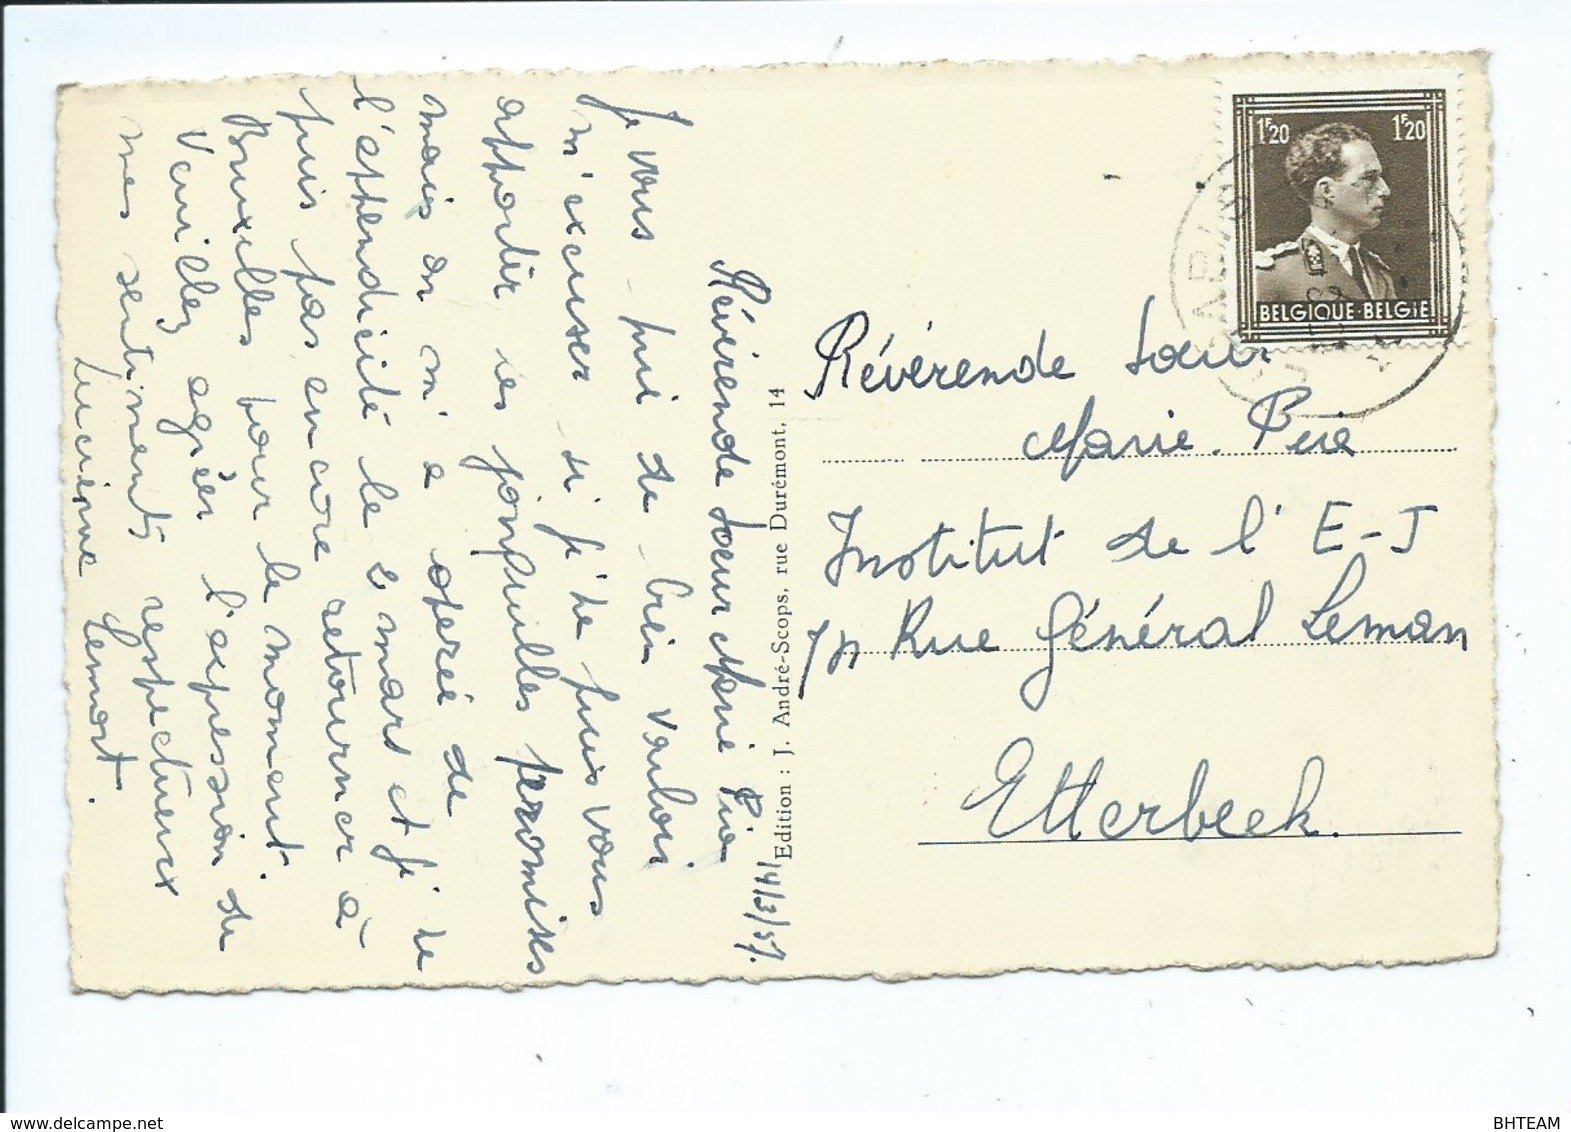 14/3/57.
Révérende Soeur Marie Pia
Je vous prie de bien vouloir
m'excuser si je ne puis vous
apporter les jonquilles promises
mais on m'a opérée de
l'appendicite le 2 mars et je ne
puis pas encore retourner à
Bruxelles pour le moment.
Veuillez agréer l'expression de
mes sentiments respectueux
Lucienne Lemort.
Edition : J. André-Scops, rue Durémont, 14
1F20 1F20
BELGIQUE·BELGIE
Révérende Soeur
Marie. Pia
Institut de l' E-J
Rue Général Leman
Etterbeek.
www.delcampe.net
BHTEAM